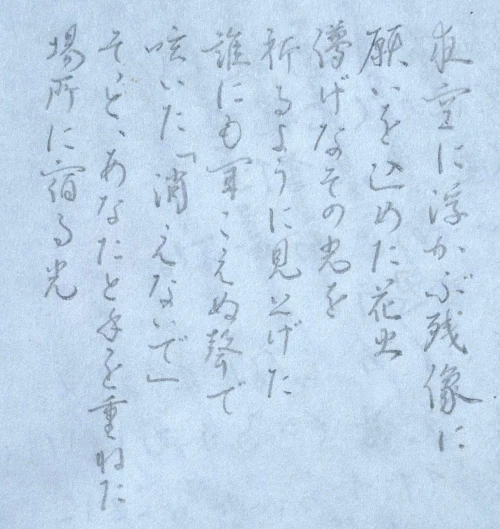 夜空に浮かぶ残像に
願いを込めた花火
儚げなその光を
祈るように見上げた
誰にも聞こえぬ聲で
呟いた「消えないで」
そっと、あなたと手を重ねた
場所に宿る光